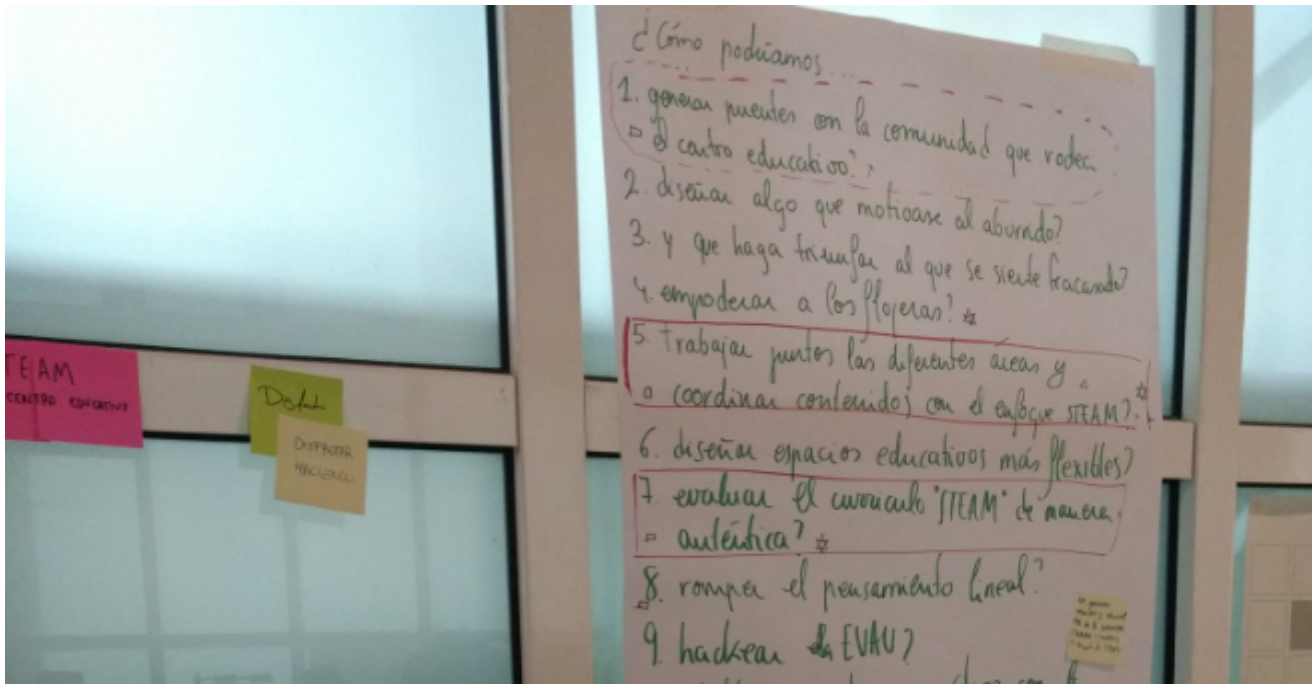 ¿Cómo podríamos...
1. generar puentes con la comunidad que rodea
el centro educativo?
2. diseñar algo que motivase al aburrido?
3. y que haga triunfar al que se siente fracasado?
4. empoderar a los flojeras?
5. trabajar juntos las diferentes áreas y
coordinar contenidos con el enfoque STEAM?
6. diseñar espacios educativos más flexibles?
7. evaluar el currículo "STEAM" de manera
auténtica?
8. romper el pensamiento lineal?
9. hackear la EVAU?
TEAM
CENTRO EDUCATIVO
DISFRUTAR
HACIENDO